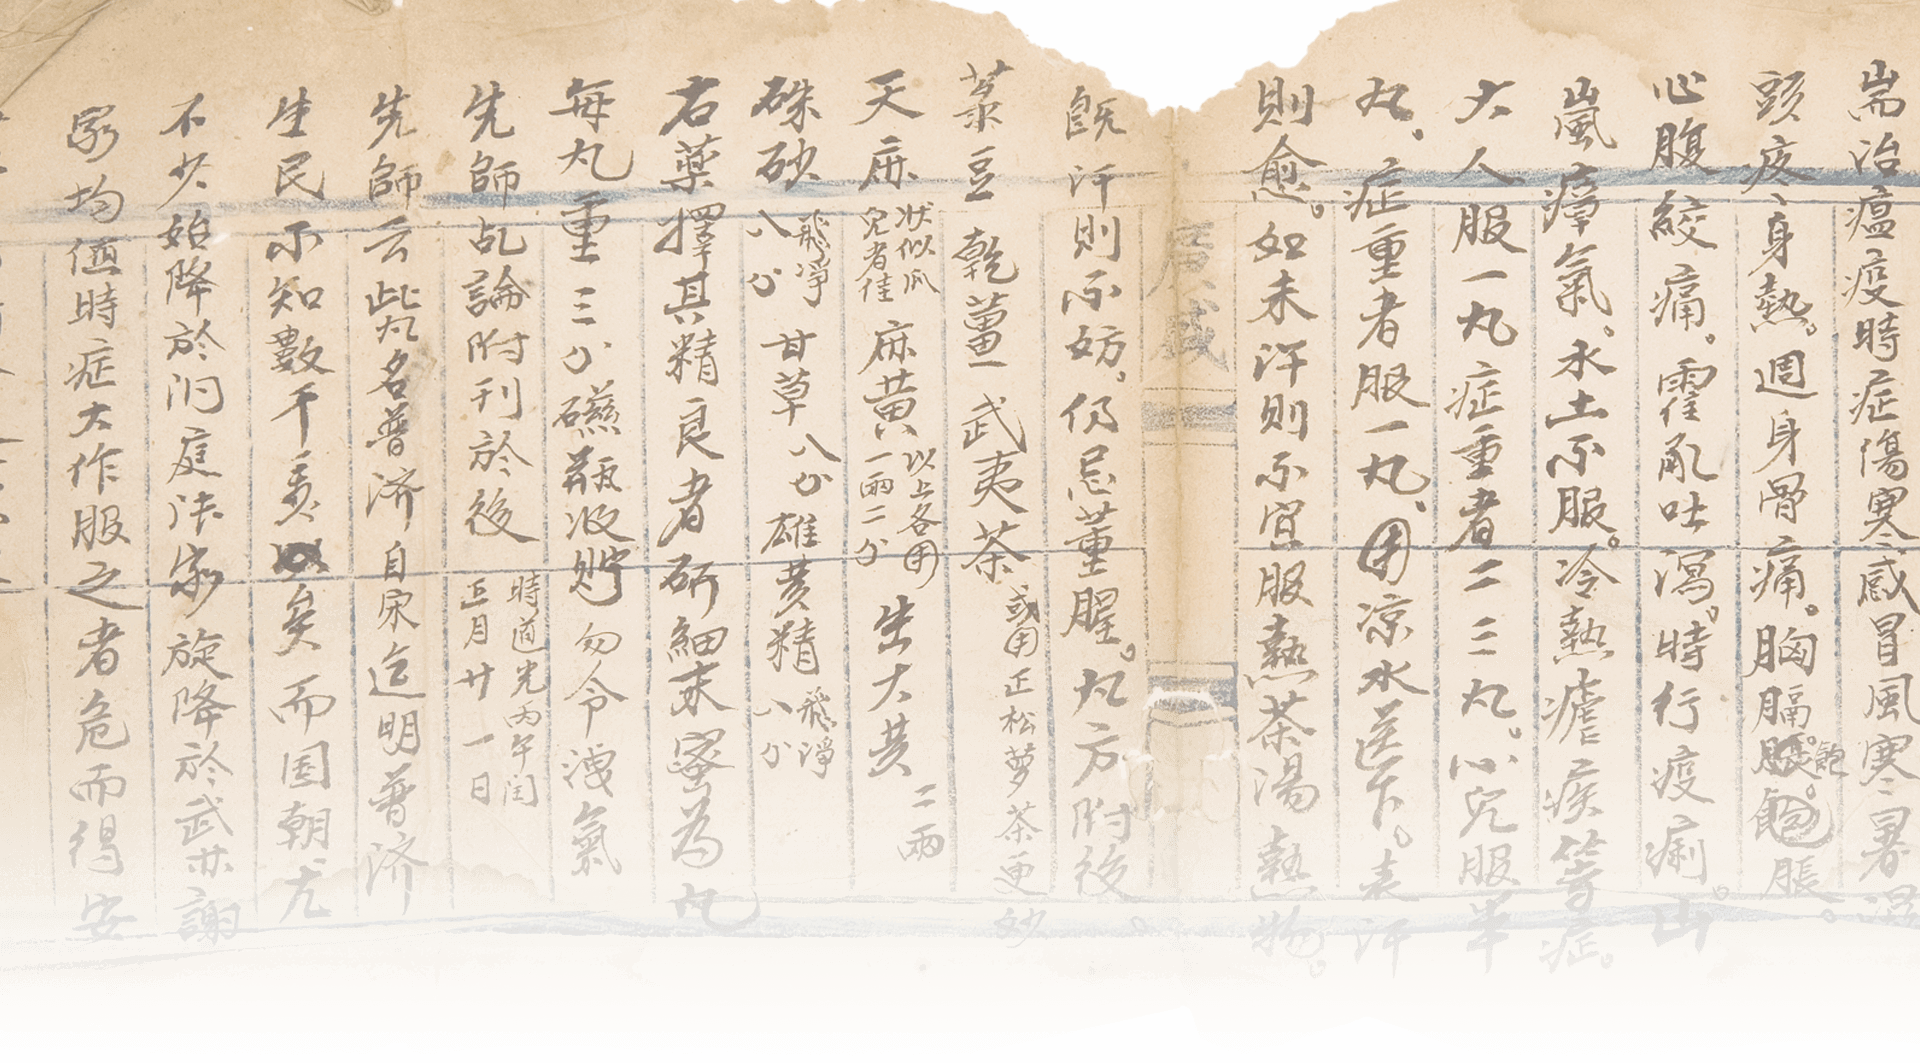 耑治瘟疫時症傷寒感冒風寒暑濕
頭疼身熱。週身骨痛。胸膈脹飽脹。
心腹絞痛。霍乱吐瀉。時行疫痢。山
嵐瘴氣。水土不服。冷熱瘧疾等症。
大人服一丸症重者二三丸。小兒服半
丸,症重者服一丸,用凉水送下。表汗
則愈。如未汗則不宜服熱茶湯熱物。
既汗則不妨。仍忌葷腥。丸方附後。
菉豆 乾薑 武夷茶 或用正松萝茶更妙
天麻 狀似瓜兒者佳 麻黄 以上各用一兩二分 生大黄 二兩
硃砂 飛净八分 甘草 八分 雄黄精 飛淨八分
右藥擇其精良者研細末蜜為丸
每丸重三分礠瓶收貯勿令洩氣
先師乩論附刊於後 時道光丙午闰五月廿一日
先師云此丸名普济自宋迄明普济
生民不知數千 矣而国朝尤
不少始降於 庭法家旋降於武林謝
家均值時症大作服之者危而得安